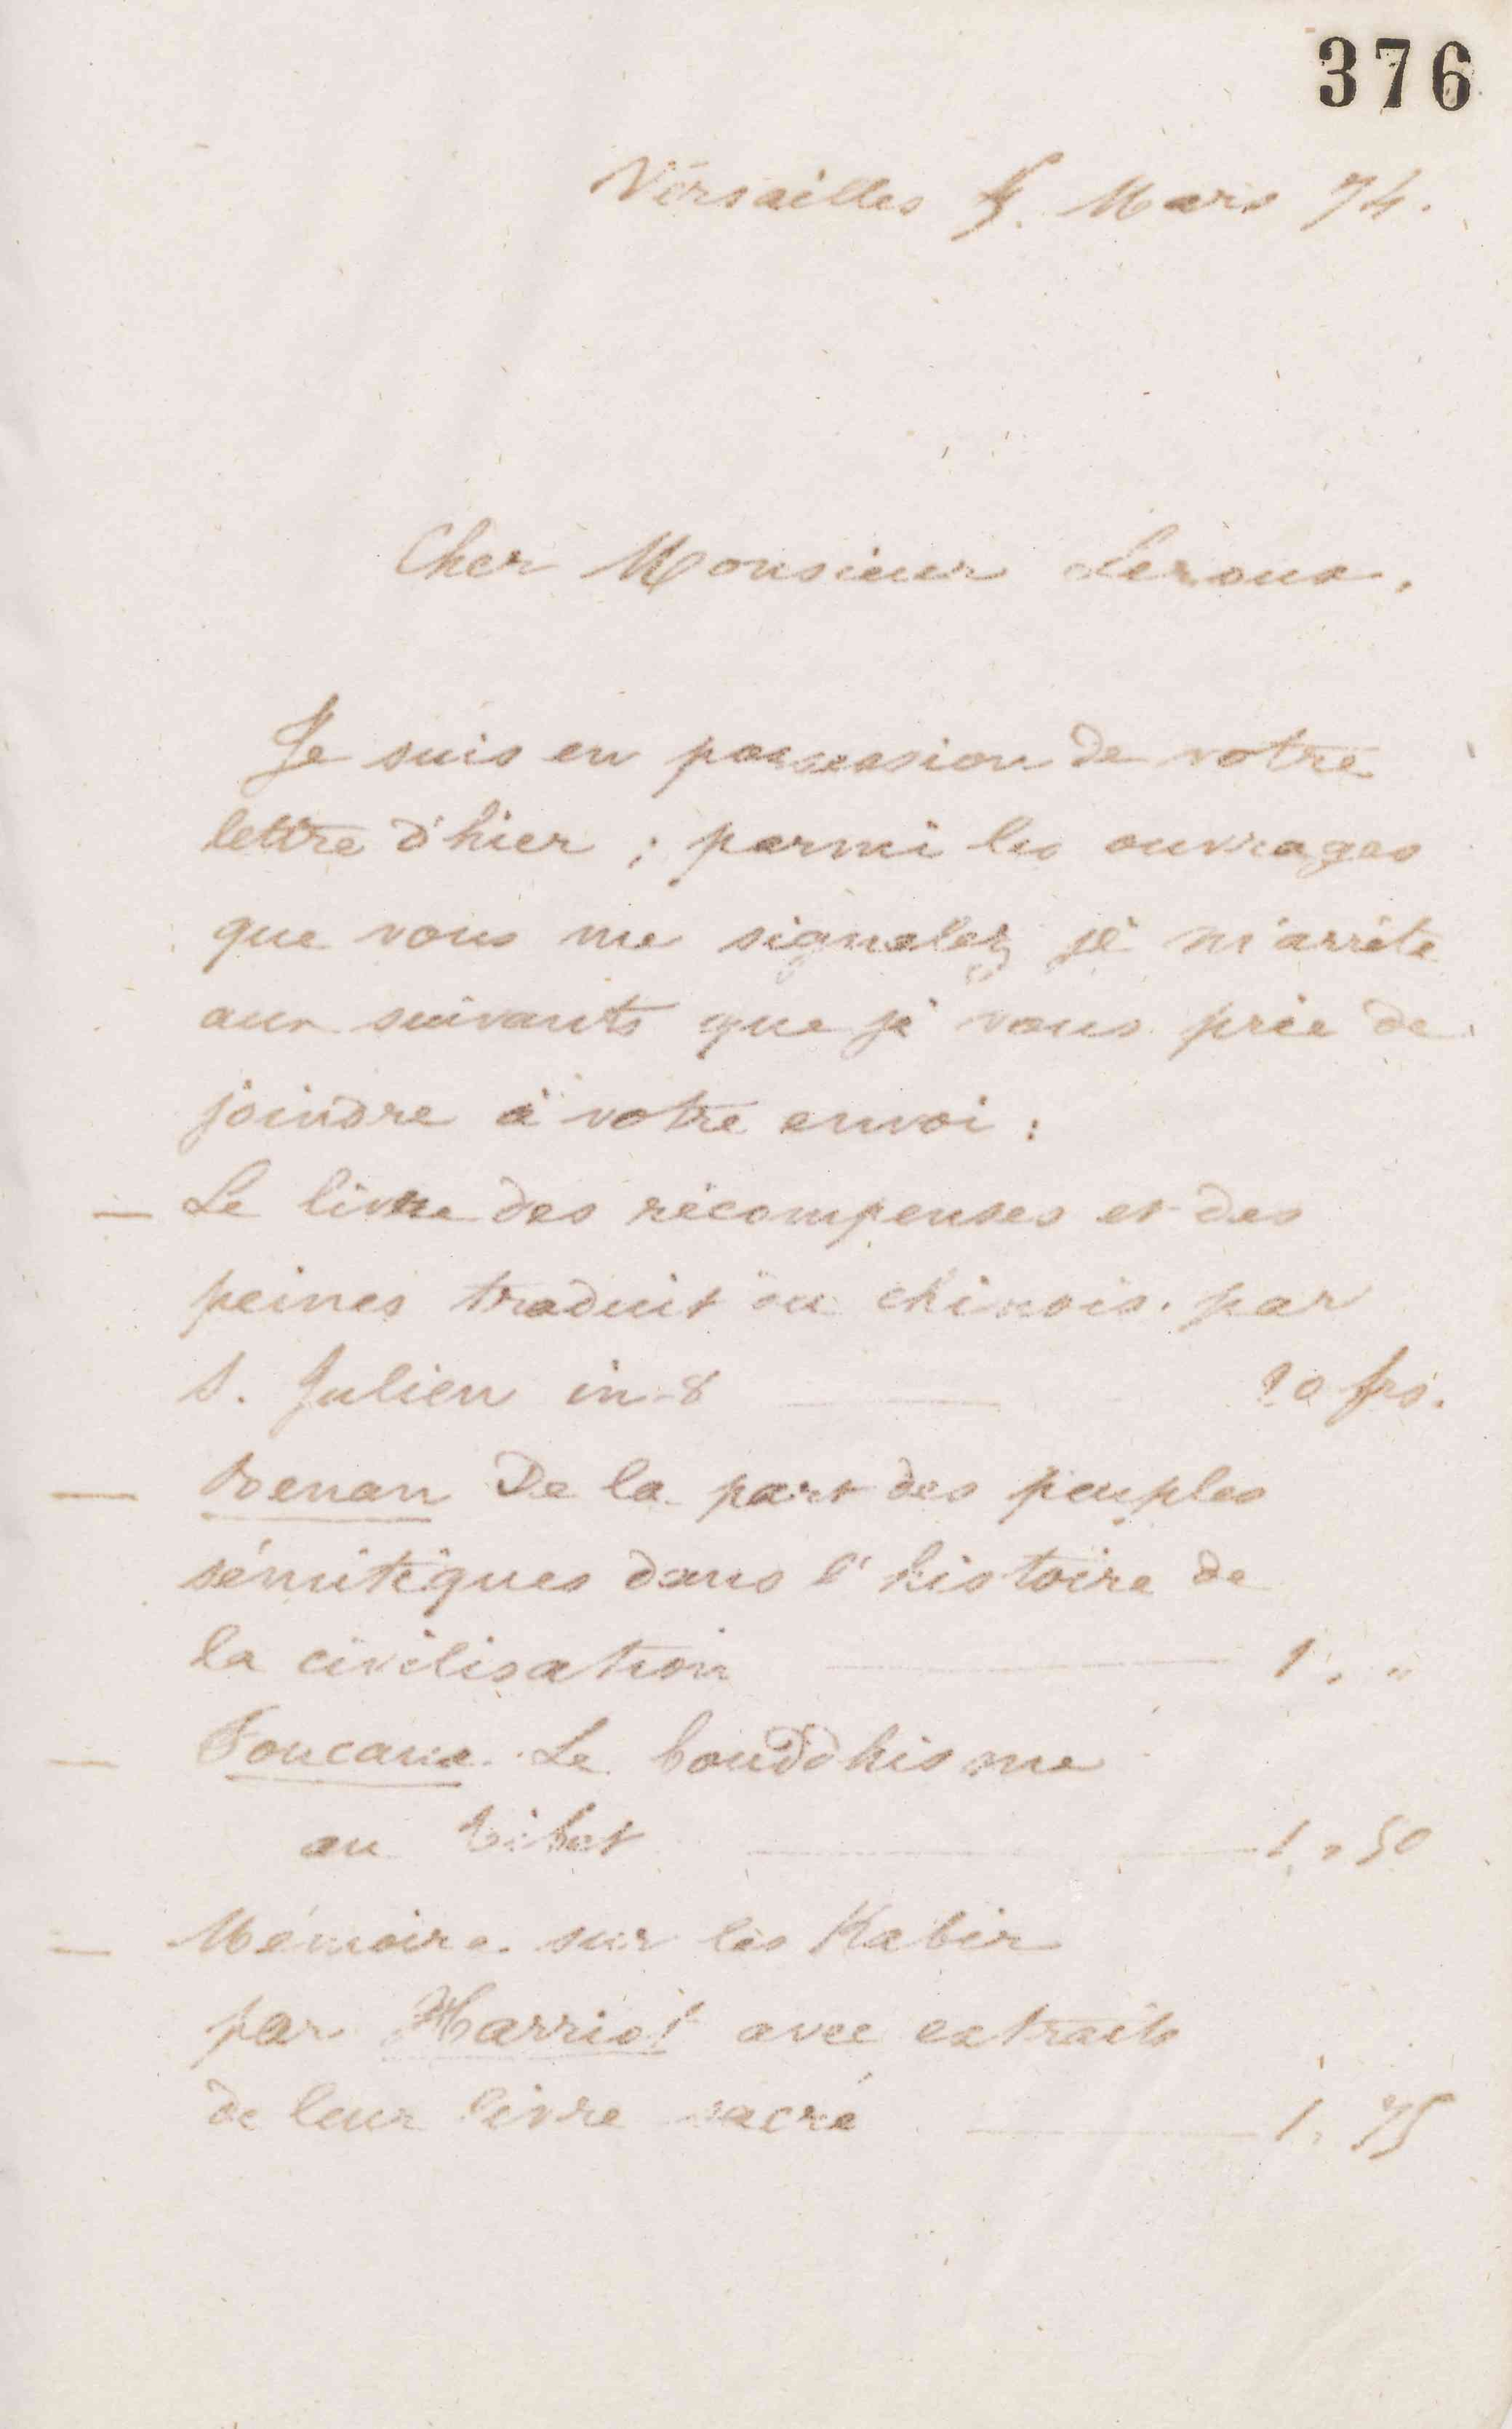 376
Versailles 5. Mars 74.
Cher Monsieur Leroux,
Je suis en possession de votre
lettre d'hier ; parmi les ouvrages
que vous me signalez je m'arrête
aux suivants que je vous prie de
joindre à votre envoi :
— Le livre des récompenses et des
peines traduit du chinois par
S. Julien in-8 — frs.
— Renan De la part des peuples
sémitiques dans l'histoire de
la civilisation — 1. "
— Foucaux. Le bouddhisme
au Tibet — 1,50
— Mémoire sur les Kabir
par Harriot avec extraits
de leur livre sacré — 1,75